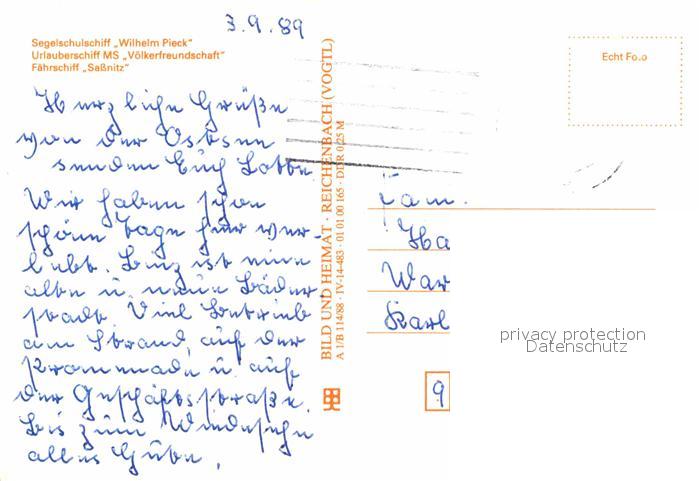 3.9.89
Segelschulschiff „Wilhelm Pieck"
Urlauberschiff MS „Völkerfreundschaft"
Fährschiff „Saßnitz"
Herzliche Grüße
von der Ostsee
senden Euch Lotte.
Wir haben schon
schöne Tage hier ver-
lebt. Binz ist eine
alte u. neue Bäder
stadt. Viel Betrieb
am Strand, auf der
Promenade u. auf
der Geschäftsstraße.
Bis zum Wiedersehn
alles Gute,
BILD UND HEIMAT · REICHENBACH (VOGTL)
A 1/B 114/88 · IV-14-483 · 01 01 00 165 · DDR 0,25 M
Echt Foto
Fam.
Ha
War
Karl
9
privacy protection
Datenschutz